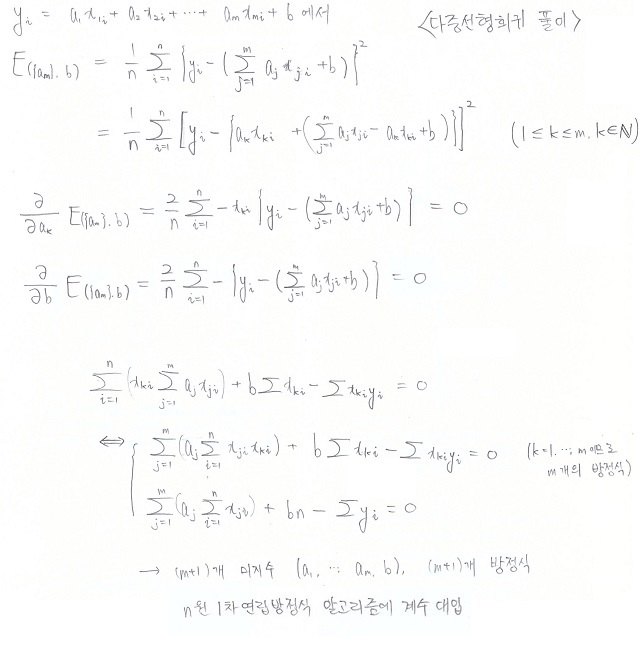 y_i = a_1x_{1i} + a_2x_{2i} + ⋯ + a_mx_{mi} + b 에서
<다중선형회귀 풀이>
E_({a_m}, b) = \frac{1}{n} \sum_{i=1}^{n} {y_i - (\sum_{j=1}^{m} a_j x_{ji} + b)}^2
= \frac{1}{n} \sum_{i=1}^{n} [y_i - {a_k x_{ki} + (\sum_{j=1}^{m} a_j x_{ji} - a_k x_{ki} + b)}]^2 (1 ≤ k ≤ m, k∈ℕ)
\frac{∂}{∂a_k} E_({a_m}, b) = \frac{2}{n} \sum_{i=1}^{n} - x_{ki} {y_i - (\sum_{j=1}^{m} a_j x_{ji} + b)} = 0
\frac{∂}{∂b} E_({a_m}, b) = \frac{2}{n} \sum_{i=1}^{n} - {y_i - (\sum_{j=1}^{m} a_j x_{ji} + b)} = 0
\sum_{i=1}^{n} (x_{ki} \sum_{j=1}^{m} a_j x_{ji}) + b∑x_{ki} - ∑x_{ki}y_i = 0
⟺ { \sum_{j=1}^{m} (a_j \sum_{i=1}^{n} x_{ji} x_{ki}) + b∑x_{ki} - ∑x_{ki}y_i = 0 (k=1, ⋯, m 이므로
m개의 방정식)
\sum_{j=1}^{m} (a_j \sum_{i=1}^{n} x_{ji}) + bn - ∑y_i = 0
→ (m+1)개 미지수 (a_1, ⋯, a_m, b), (m+1)개 방정식
n원 1차 연립방정식 알고리즘에 계수 대입